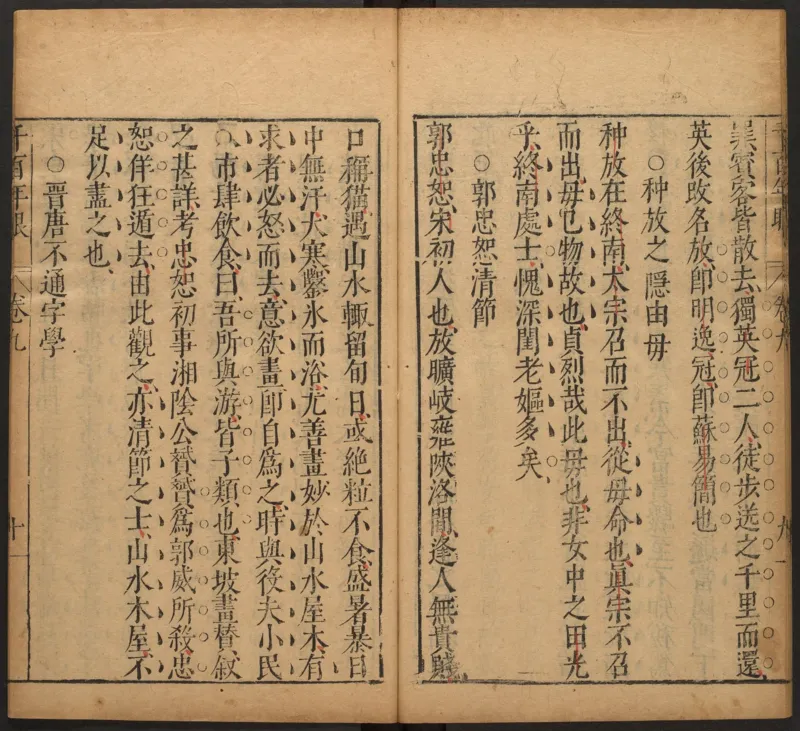 千百年眼 卷九 九
吳賓客皆散去獨英冠二人徒步送之千里而還
英後改名放卽明逸冠卽蘇易簡也
○种放之隱由母
种放在終南太宗召而不出從母命也眞宗不召
而出母已物故也貞烈哉此母也非女中之田光
乎終南處士愧深閨老嫗多矣
○郭忠恕清節
郭忠恕宋初人也放曠岐雍陝洛間逢人無貴賤
口稱貓遇山水輒留旬日或絶粒不食盛暑暴日
中無汗大寒鑿氷而浴尤善畫妙於山水屋木有
求者必怒而去意欲畫卽自爲之時與役夫小民
市肆飲食曰吾所與游皆子類也東坡畫贊叙
之甚詳考忠恕初事湘陰公贇贇爲郭威所殺忠
恕佯狂遁去由此觀之亦清節之士山水木屋不
足以盡之也
○晉唐不通字學
千百年眼 卷九 十